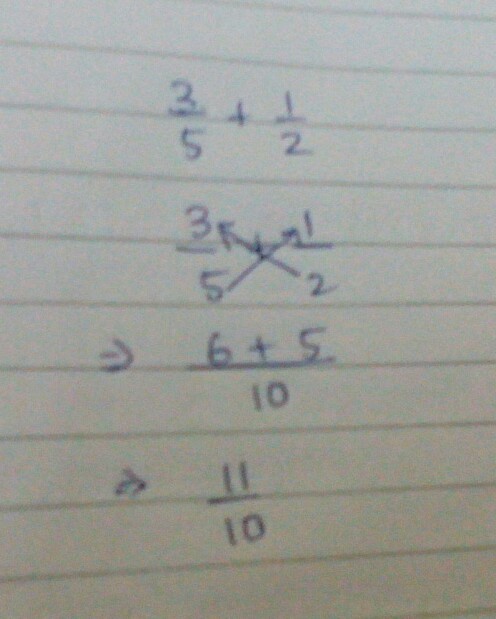 3/5 + 1/2
3/5 + 1/2
⇒ (6 + 5)/10
⇒ 11/10